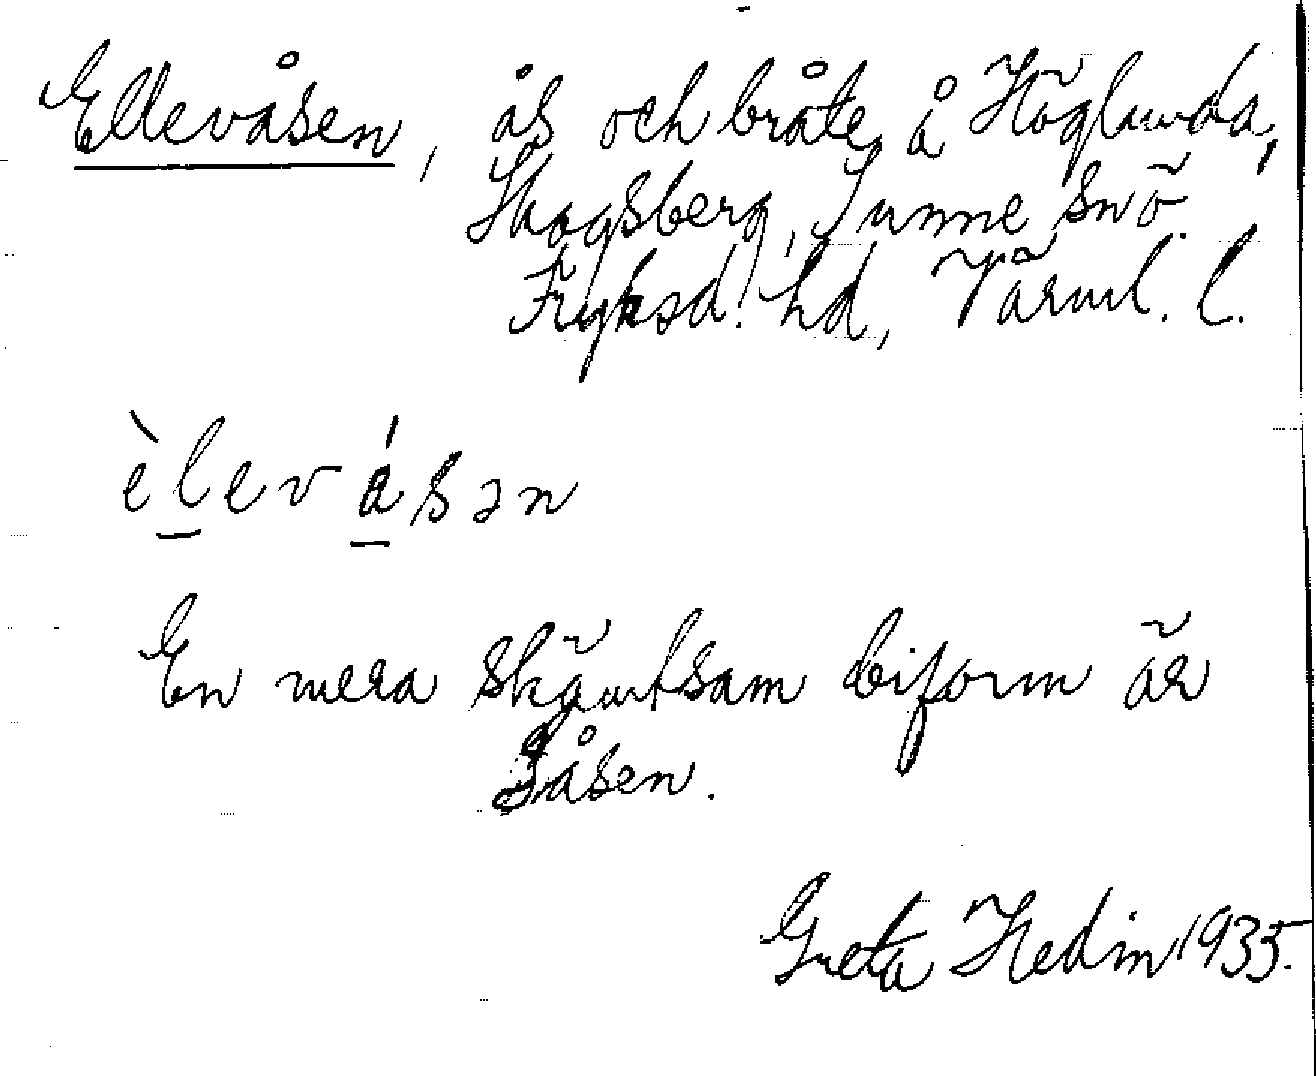 Ellevåsen, ås och bråte å Höglunda,
Skogsberg, Sunne snö.
Fryksd. hd, Värml. l.
èlevåsən
En mera skämtsam biform är
Såsen.
Greta Hedin 1935.